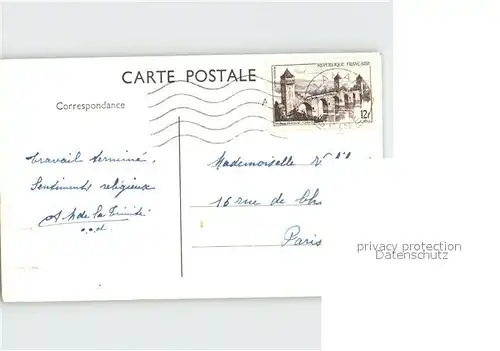 CARTE POSTALE
RÉPUBLIQUE FRANÇAISE
12f
Correspondance
travail terminé.
Sentiments religieux
de la Trinité
o.c.d.
Mademoiselle
16 rue de
Paris
privacy protection
Datenschutz